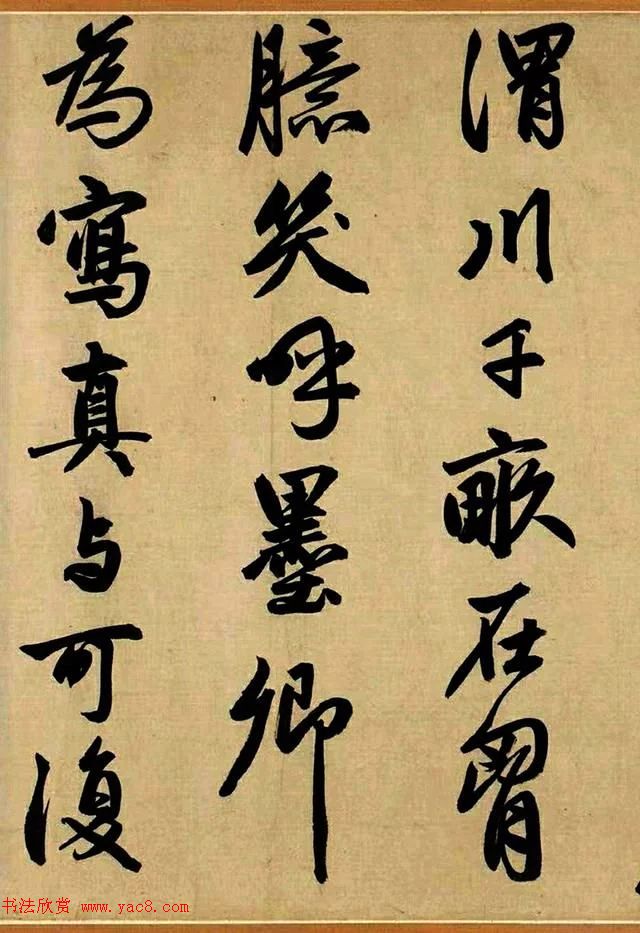 渭川千畝在胷
臆笑呼墨卿
為寫真与可復
书法欣赏 www.yac8.com